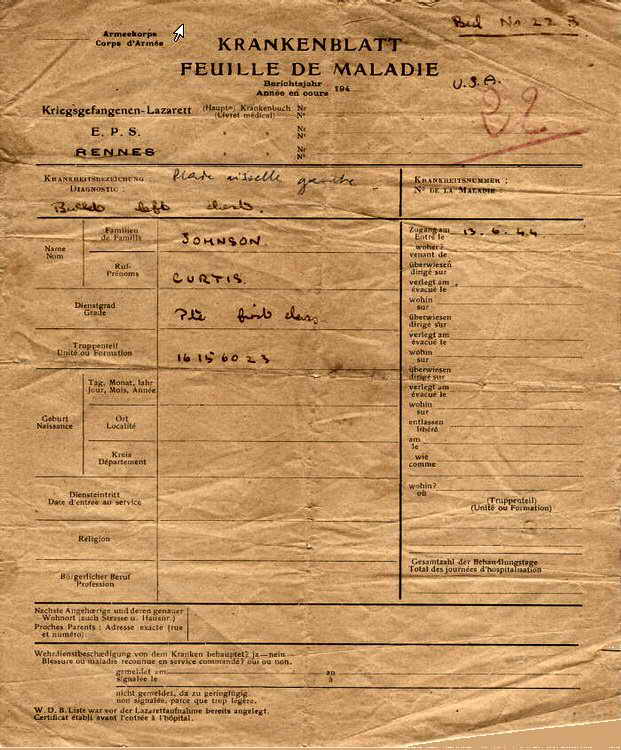 Bed No 22 B
Armeekorps
Corps d'Armée
KRANKENBLATT
FEUILLE DE MALADIE
Berichtsjahr
Année en cours 194
U.S.A.
22
Kriegsgefangenen-Lazarett (Haupt=) Krankenbuch Nr
(Livret médical) N°
E. P. S. Nr
N°
RENNES Nr
N°
KRANKHEITSBEZEICHNUNG : Plaie aisselle gauche
DIAGNOSTIC :
Bullet left chest.
KRANKHEITSNUMMER :
N° DE LA MALADIE :
Name
Nom
Familien
de Famille
JOHNSON
Ruf-
Prénoms
CURTIS.
Dienstgrad
Grade
Pte first class
Truppenteil
Unité ou Formation
16156023
Geburt
Naissance
Tag, Monat, Jahr
Jour, Mois, Année
Ort
Localité
Kreis
Département
Diensteintritt
Date d'entrée au service
Religion
Bürgerlicher Beruf
Profession
Zugang am
Entré le 13. 6. 44
woher?
venant de
überwiesen
dirigé sur
verlegt am
évacué le
wohin
sur
überwiesen
dirigé sur
verlegt am
évacué le
wohin
sur
überwiesen
dirigé sur
verlegt am
évacué le
wohin
sur
entlassen
libéré
am
le
wie
comme
wohin?
où
(Truppenteil)
(Unité ou Formation)
Gesamtzahl der Behandlungstage
Total des journées d'hospitalisation
Nächste Angehœrige und deren genauer
Wohnort (auch Strasse u. Hausnr.)
Proches Parents : Adresse exacte (rue
et numéro)
Wehrdienstbeschædigung von dem Kranken behauptet? ja—nein—
Blessure ou maladie reconnue en service commandé? oui ou non.
gemeldet am an
signalée le à
nicht gemeldet, da zu geringfügig
non signalée, parce que trop légère.
W. D. B. Liste war vor der Lazarettaufnahme bereits angelegt.
Certificat établi avant l'entrée à l'hôpital.